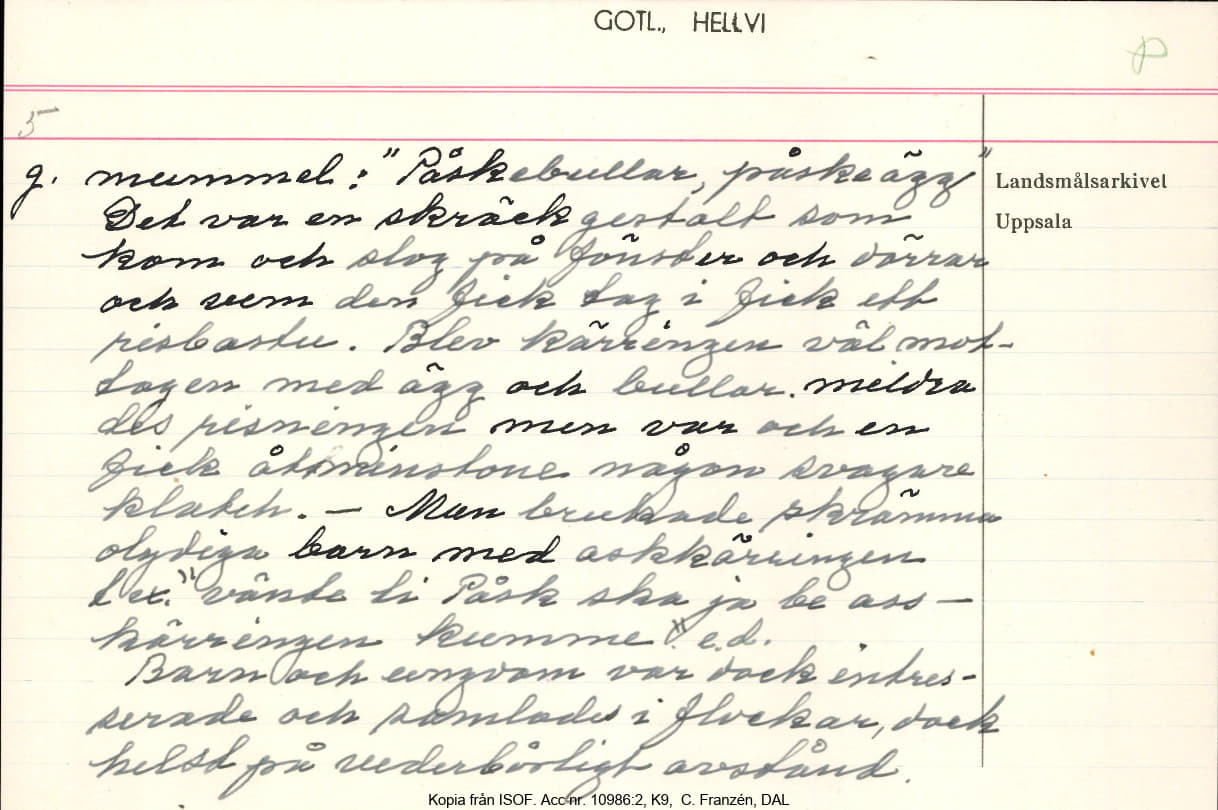 GOTL., HELLVI
P
5
g. mummel: "Påskebullar, påskeägg"
Landsmålsarkivet
Det var en skräckgestalt som
Uppsala
kom och slog på fönster och dörrar
och vem den fick tag i fick ett
risbastu. Blev kärringen väl mot-
tagen med ägg och bullar. mildra
des risningen men var och en
fick åtminstone någon svagare
klatch. — Man brukade skrämma
olydiga barn med askkärringen
t ex. "vänte ti Påsk ska ja be ass-
kärringen kumme" e.d.
Barn och ungdom var dock intres-
serade och samlades i flockar, dock
helst på vederbörligt avstånd.
Kopia från ISOF. Acc nr. 10986:2, K9, C. Franzén, DAL